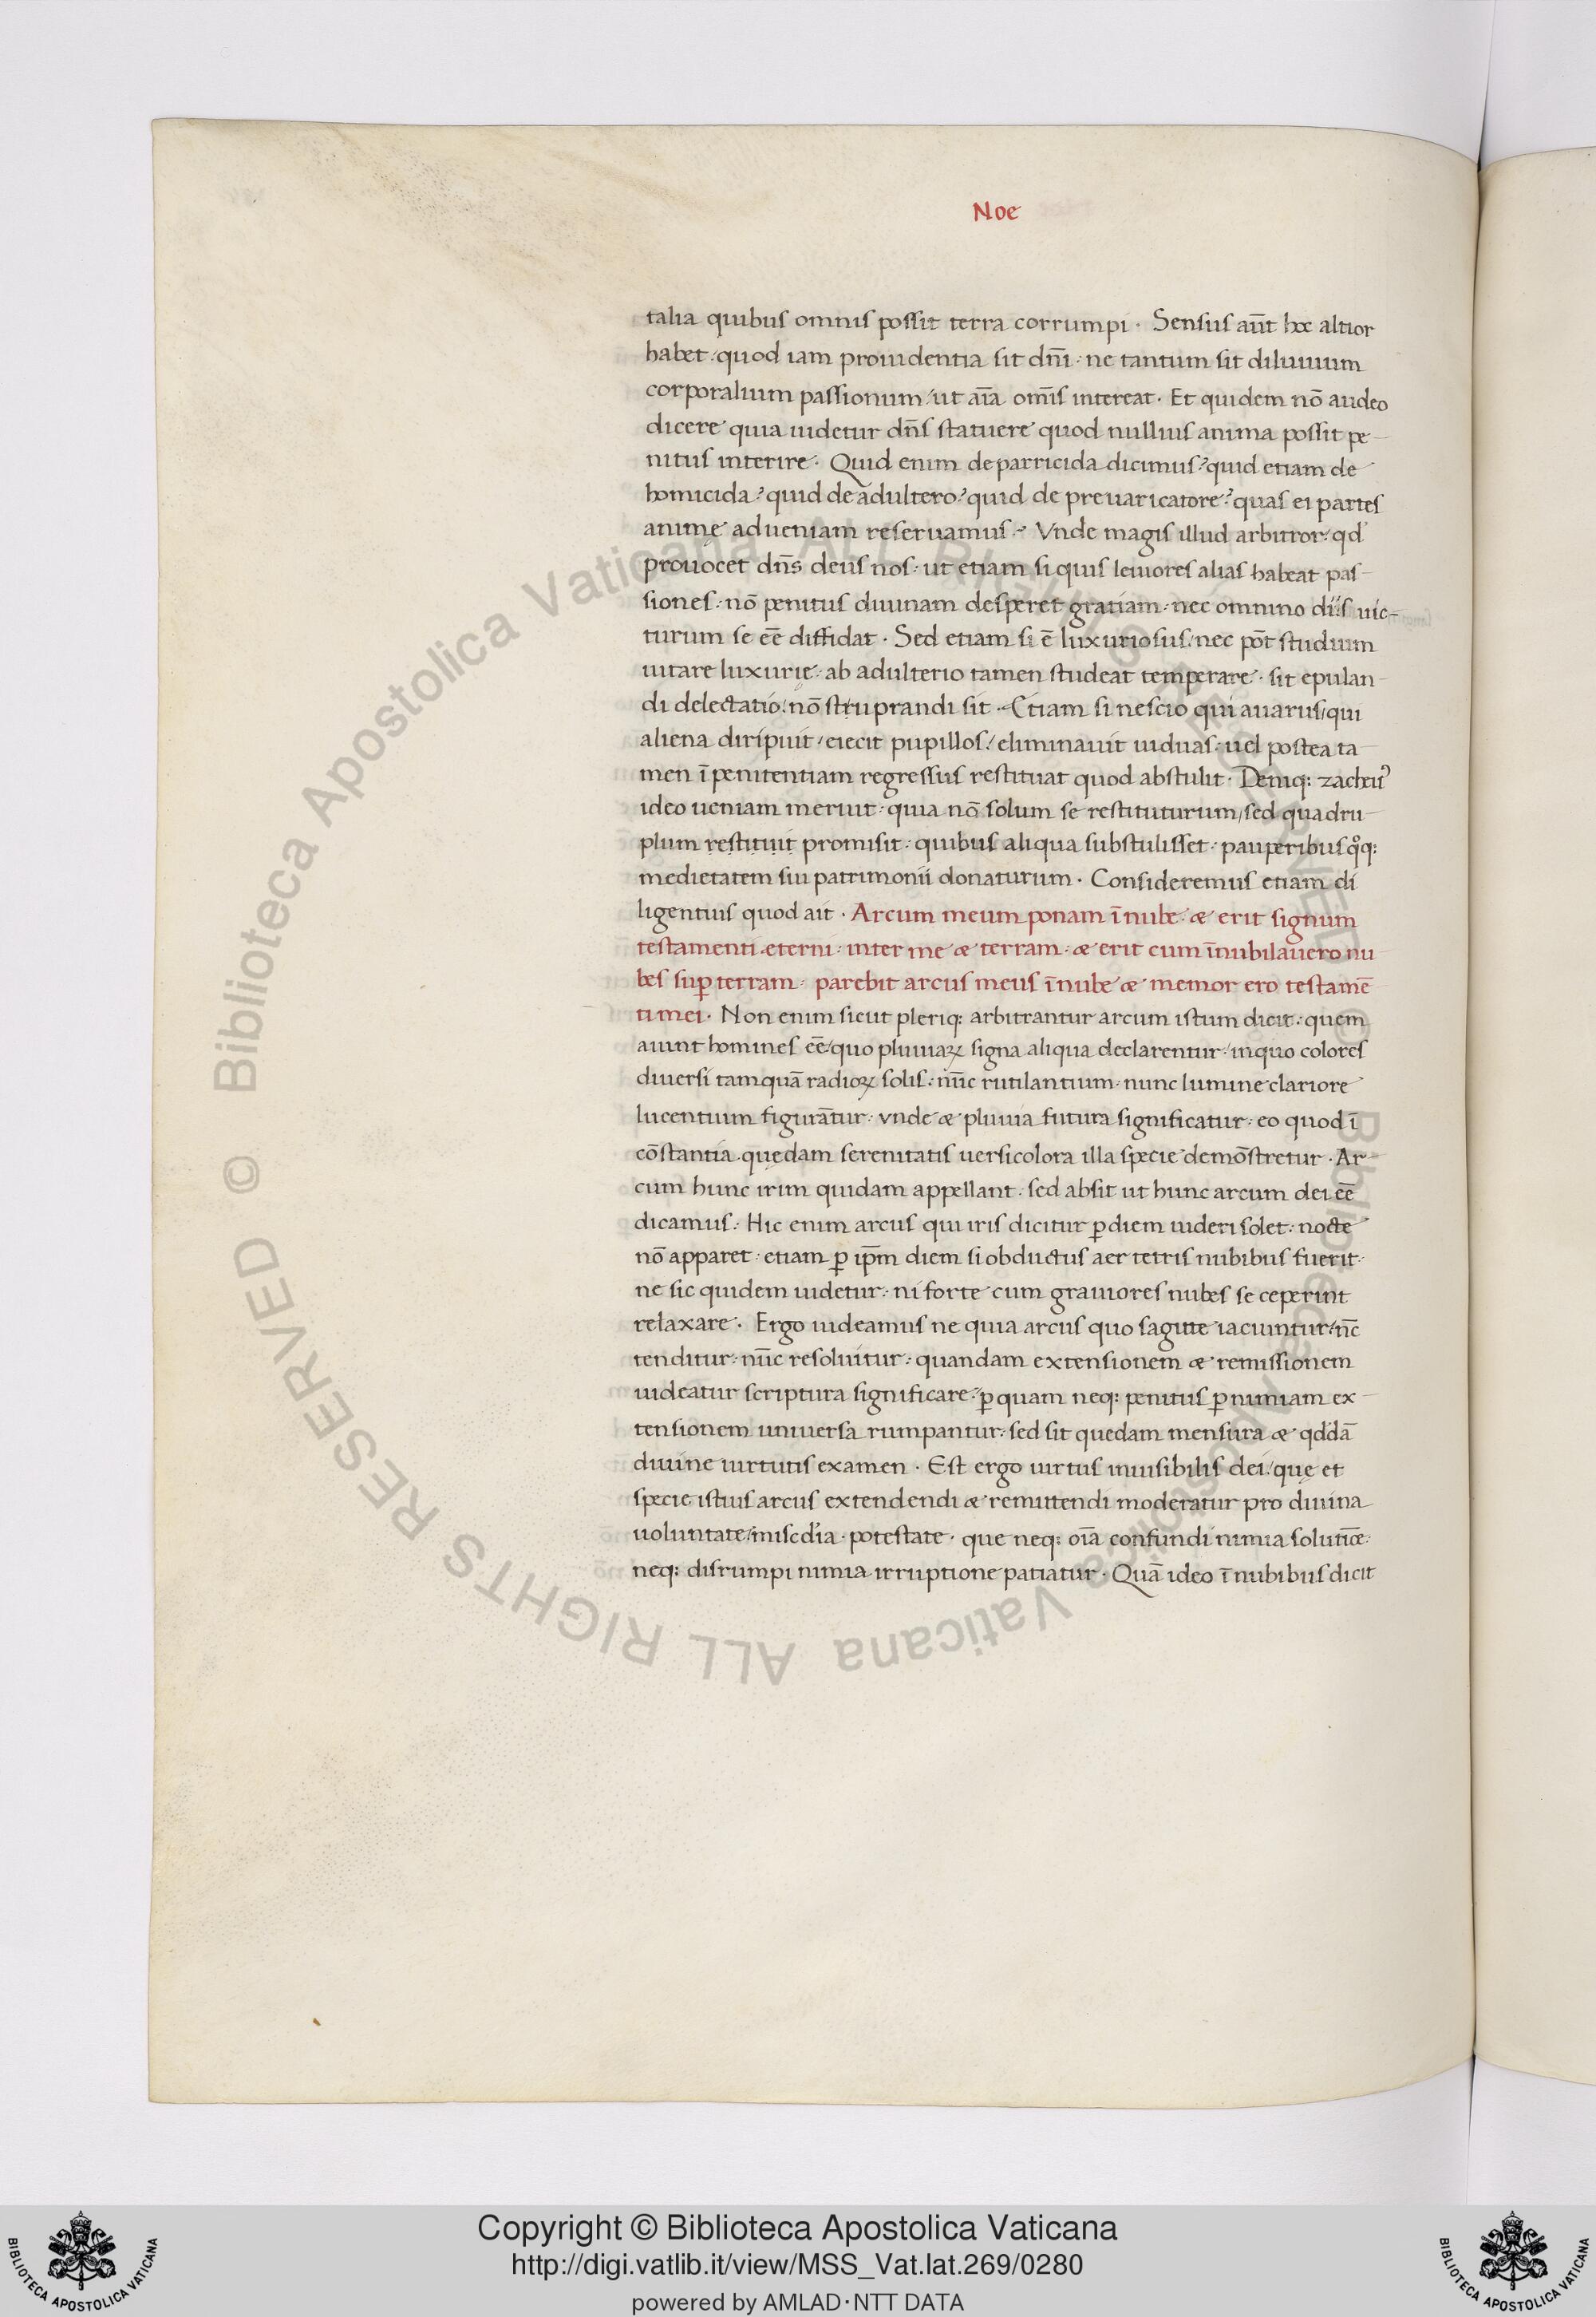 Noe
talia quibus omnis possit terra corrumpi · Sensus aūt hoc altior
habet : quod iam prouidentia sit dn̄i : ne tantum sit diluuium
corporalium passionum / ut aīa om̄is intereat · Et quidem nō audeo
dicere quia uidetur dn̄s statuere quod nullius anima possit pe-
nitus interire · Quid enim de parricida dicimus? quid etiam de
homicida? quid de adultero? quid de preuaricatore? quas ei partes
animę ad ueniam reseruamus? Vnde magis illud arbitror : qd
prouocet dn̄s deus nos : ut etiam si quis leuiores alias habeat pas-
siones : nō penitus diuinam desperet gratiam : nec omnino uic-
turum se eē diffidat · Sed etiam si ē luxuriosus / nec pōt studium
uitare luxurie : ab adulterio tamen studeat temperare · sit epulan-
di delectatio / nō struprandi sit · Etiam si nescio qui auarus / qui
aliena diripuit / eiecit pupillos / eliminauit uiduas : uel postea ta-
men ī penitentiam regressus restituat quod abstulit · Deniq: zacheus
ideo ueniam meruit : quia nō solum se restituturum / sed quadru-
plum restituit promisit : quibus aliqua substulisset : pauperibus qͦq:
medietatem sui patrimonii donaturum · Consideremus etiam di
ligentius quod ait · Arcum meum ponam ī nube : æ erit signum
testamenti eterni : inter me æ terram : æ erit cum īnubilauero nu
bes suꝑ terram : parebit arcus meus ī nube æ memor ero testamē
ti mei · Non enim sicut pleriq: arbitrantur arcum istum dicit : quem
aiunt homines eē / quo pluuiaꝝ signa aliqua declarentur / in quo colores
diuersi tamquā radioꝝ solis : nūc rutilantium : nunc lumine clariore
lucentium figurātur : vnde æ pluuia futura significatur : eo quod ī
cōstantia quędam serenitatis uersicolora illa specie demōstretur · Ar-
cum hunc irim quidam appellant : sed absit ut hunc arcum dei eē
dicamus : Hic enim arcus qui iris dicitur ꝑ diem uideri solet : nocte
nō apparet : etiam ꝑ ip̄m diem si obductus aer tetris nubibus fuerit :
ne sic quidem uidetur : ni forte cum grauiores nubes se ceperint
relaxare · Ergo uideamus ne quia arcus quo sagitte iacuintur / nc̄
tenditur : nūc resoluitur : quandam extensionem æ remissionem
uideatur scriptura significare : ꝑ quam neq: penitus ꝑ nimiam ex-
tensionem uniuersa rumpantur : sed sit quedam mensura æ qddā
diuine uirtutis examen · Est ergo uirtus inuisibilis dei / quę et
specie istius arcus extendendi æ remittendi moderatur pro diuina
uoluntate / misc̄dia · potestate · que neq: oīa confundi nimia solutiōe :
neq: disrumpi nimia irruptione patiatur · Quā ideo ī nubibus dicit
© Biblioteca Apostolica Vaticana ALL RIGHTS RESERVED © Biblioteca Apostolica Vaticana ALL RIGHTS RESERVED
Copyright © Biblioteca Apostolica Vaticana
http://digi.vatlib.it/view/MSS_Vat.lat.269/0280
powered by AMLAD·NTT DATA
BIBLIOTECA APOSTOLICA VATICANA
BIBLIOTECA APOSTOLICA VATICANA